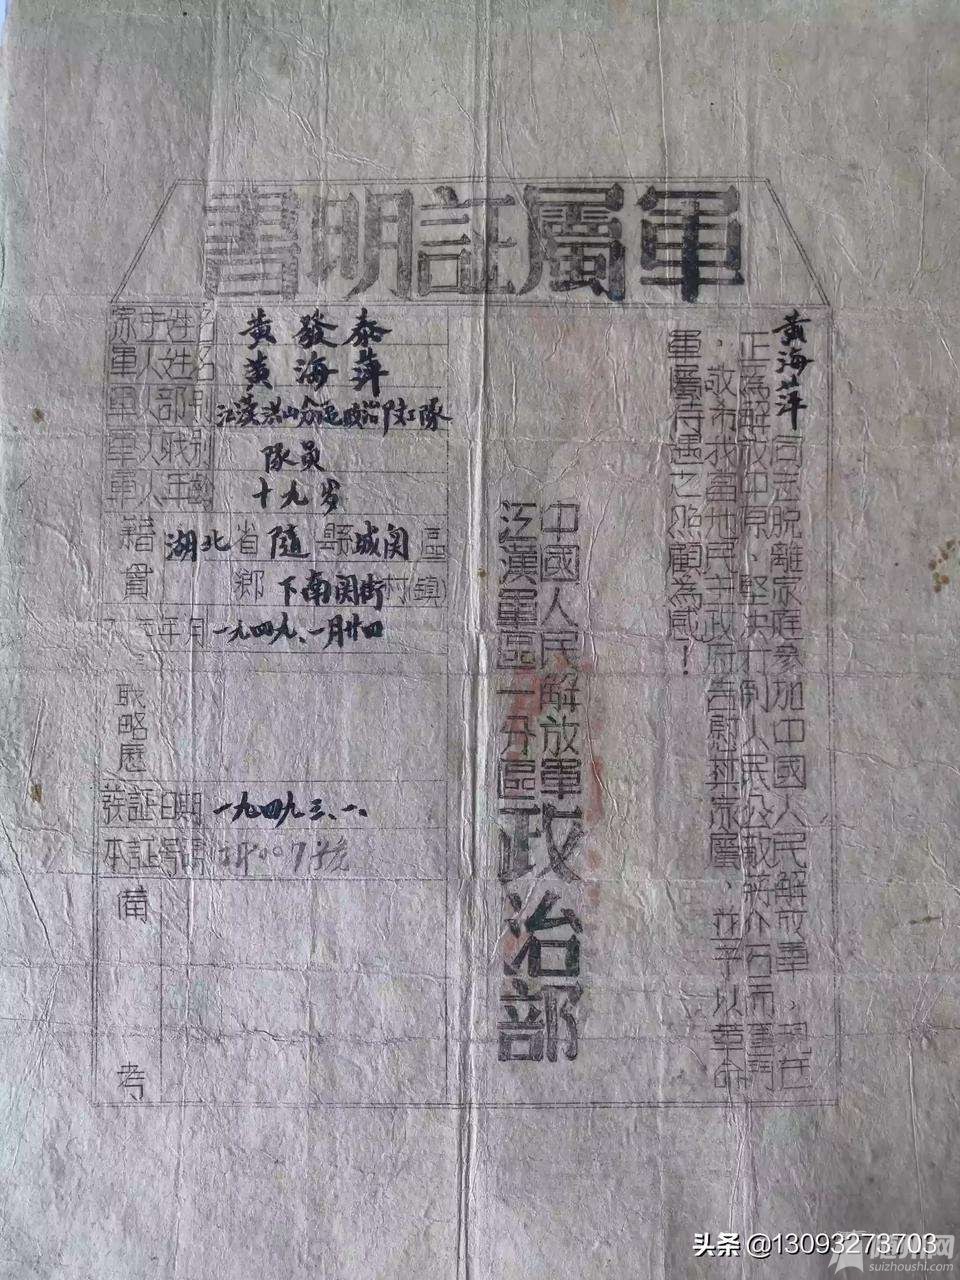 軍屬証明書
黃海萍同志脫離家庭參加中國人民解放軍，現在
正爲解放中原，堅決打倒人民公敵蔣介石而奮鬥
，敬希我當地民主政府告慰其家屬，並予以革命
軍屬待遇之照顧為感！
中國人民解放軍
江漢軍區一分區政治部
家主姓名 黃發泰
軍人姓名 黃海萍
軍人部別 江漢洪山分區政治部 隊
軍人职別 隊員
軍人年齡 十九岁
籍貫 湖北省隨縣城関區
鄉下南関街村(鎮)
年月 一九四九、一月廿四
略歷
發証日期 一九四九、三、一、
本証號碼 007號
備考
头条 @13093273703
隨州网
suizhoushi.com